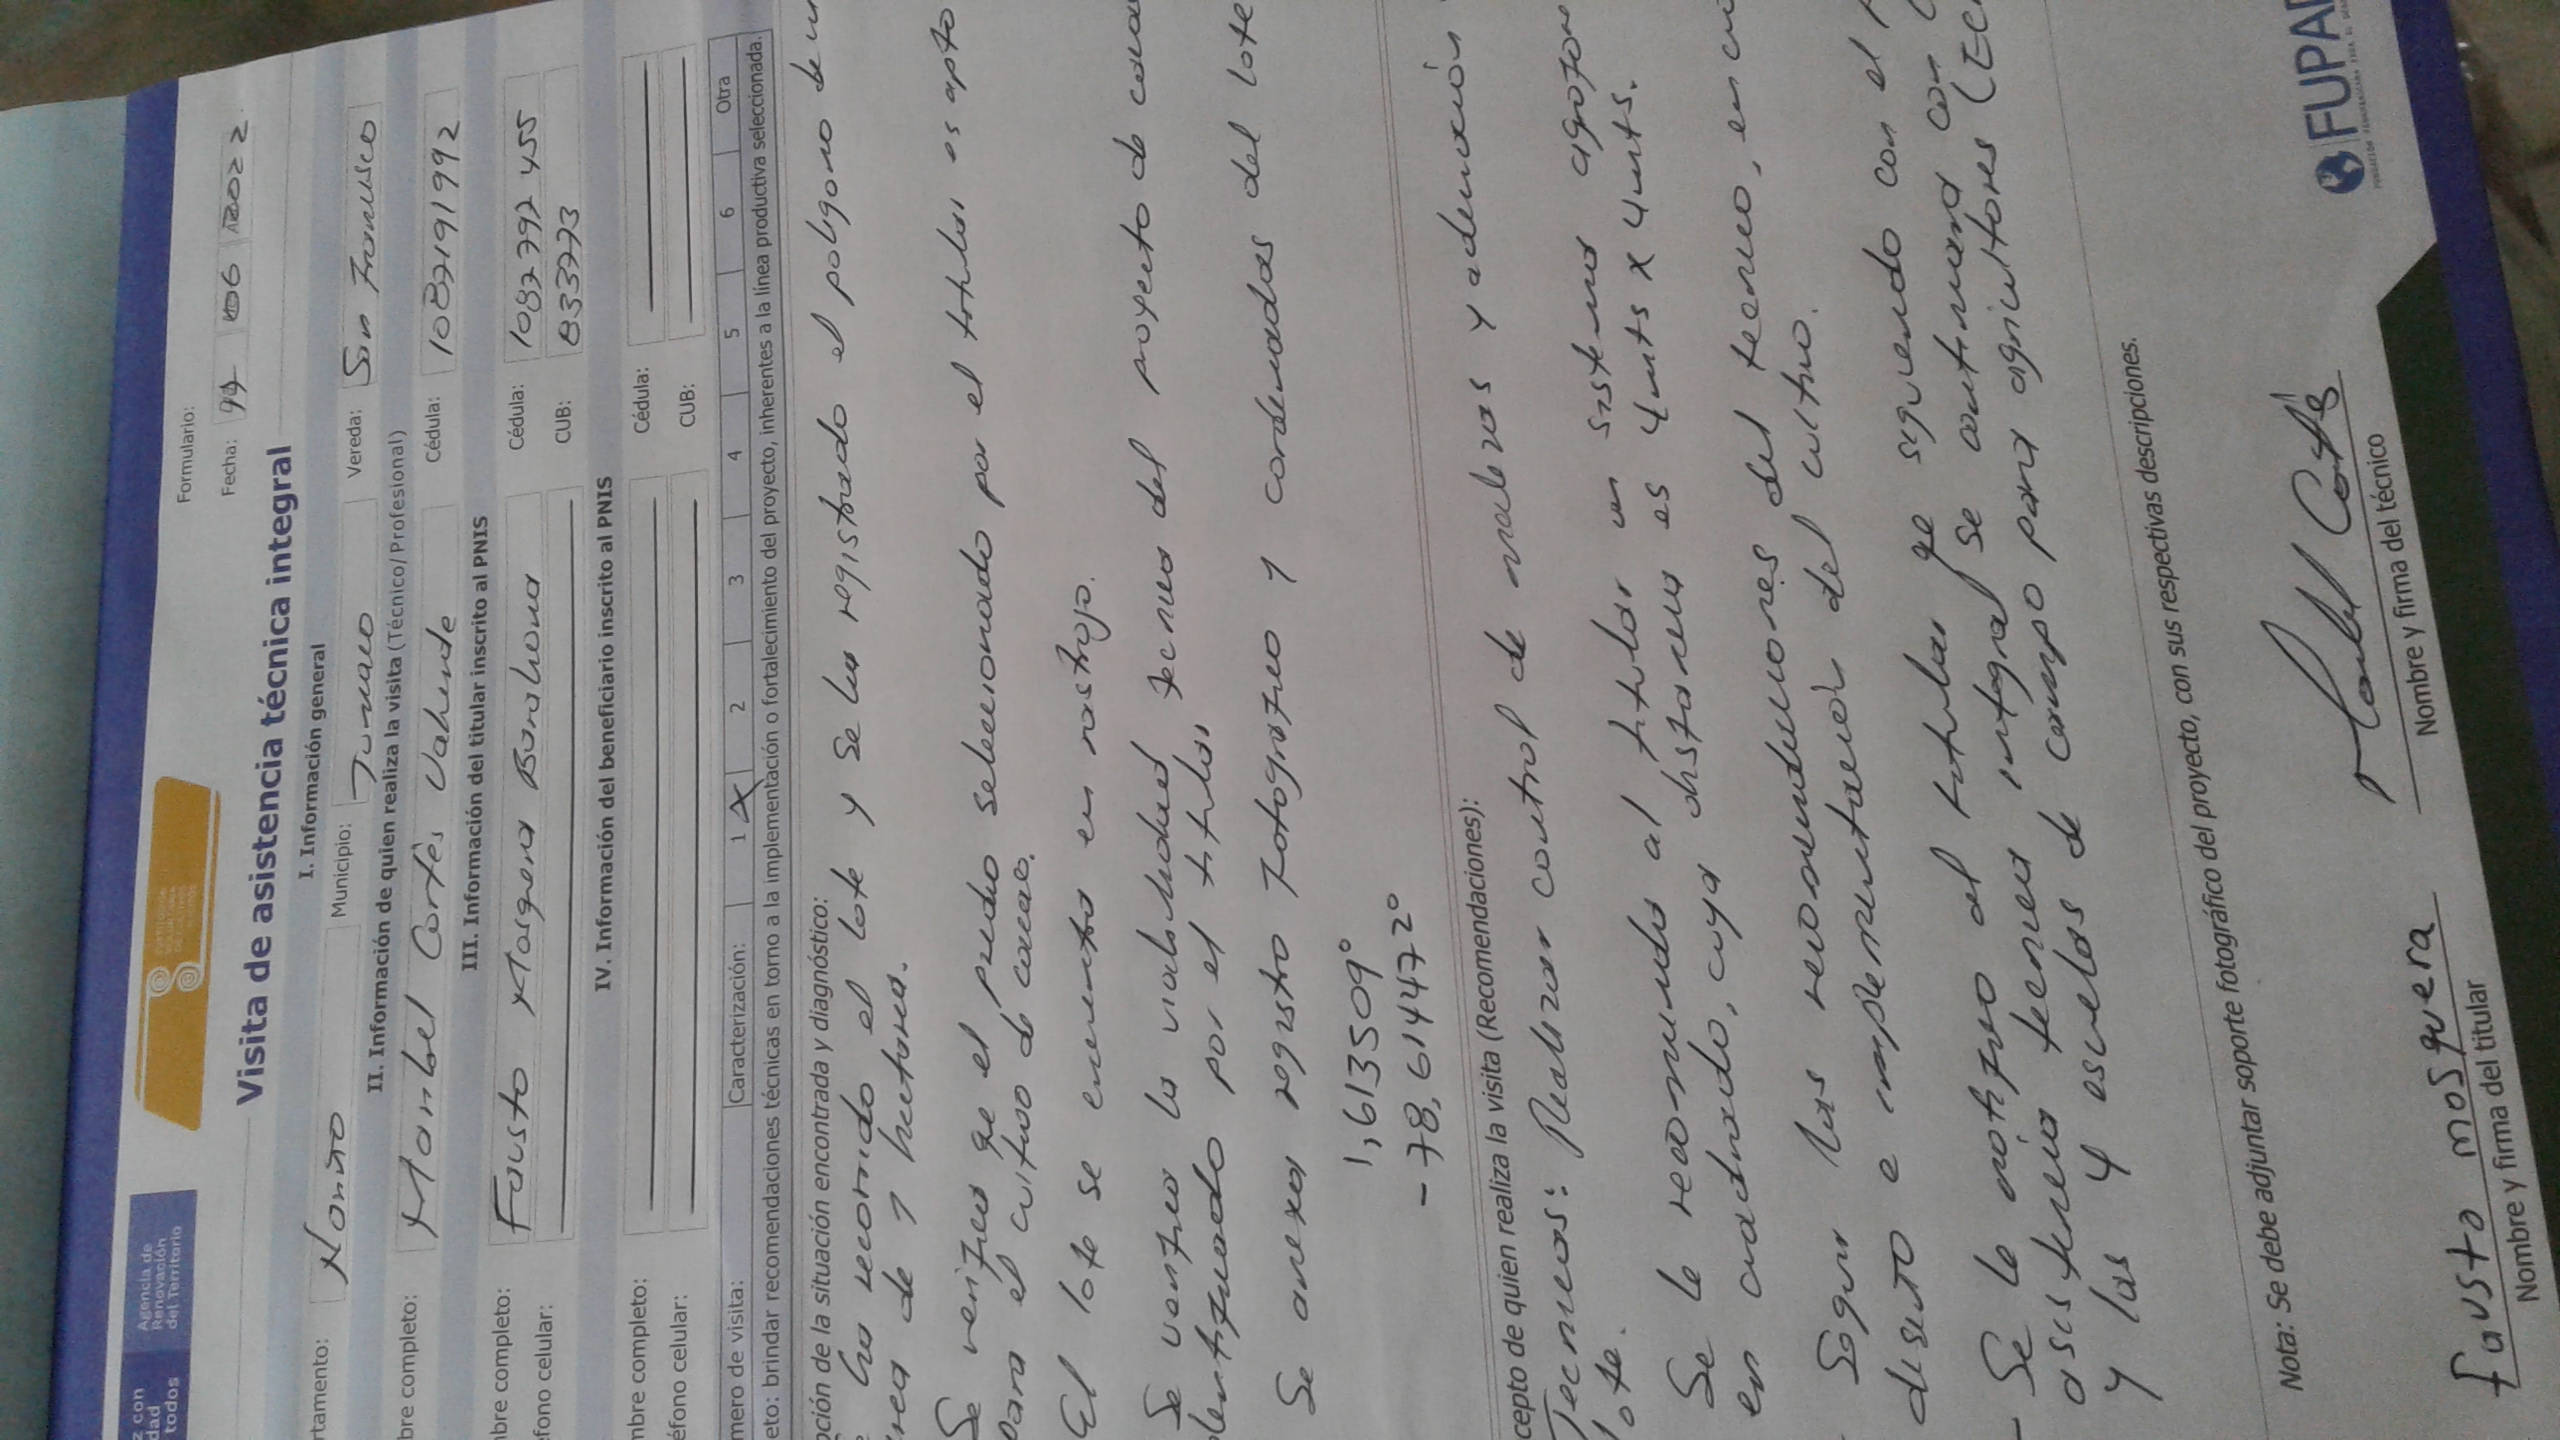 z con
dad
todos
Agencia de
Renovación
del Territorio
Formulario:
Fecha: 06 2022
Visita de asistencia técnica integral
I. Información general
rtamento: Nariño Municipio: Tumaco Vereda: San Francisco
II. Información de quien realiza la visita (Técnico/Profesional)
bre completo: Maribel Cortés Valiente Cédula: 1087191992
III. Información del titular inscrito al PNIS
mbre completo: Fausto Mosquera Barahona Cédula: 1087792455
éfono celular: CUB: 8337273
IV. Información del beneficiario inscrito al PNIS
mbre completo: Cédula:
éfono celular: CUB:
mero de visita: Caracterización: 1 X 2 3 4 5 6 Otra
eto: brindar recomendaciones técnicas en torno a la implementación o fortalecimiento del proyecto, inherentes a la línea productiva seleccionada.
pción de la situación encontrada y diagnóstico:
ha recorrido el lote y se ha registrado el poligono de un
área de 1 hectárea.
Se verificó qe el predio seleccionado por el titular es apto
para el cultivo de cacao.
El lote se encuentra en rastrojo.
Se verificó la viabilidad tecnica del proyecto de cacao
dentificado por el titular
Se anexa registro fotografico y cordenadas del lote
1,613509°
-78,6144472°
cepto de quien realiza la visita (Recomendaciones):
Tecnicas: Realizar control de malezas y adecuación
lote.
Se le recomienda al titular un sistema agrofor
en cuadrado, cuya distancia es 4mts x 4mts.
Seguir las recomendaciones del tecnico, en cu
diseño e implementación del cultivo.
- Se le notificó al titular qe siguiendo con el
asistencia tecnica integral se continuará con
y las 4 escuelas de campo para agricultores (ECA
Nota: Se debe adjuntar soporte fotográfico del proyecto, con sus respectivas descripciones.
fausto mosquera
Nombre y firma del titular
Maribel Cortés
Nombre y firma del técnico
FUPAD